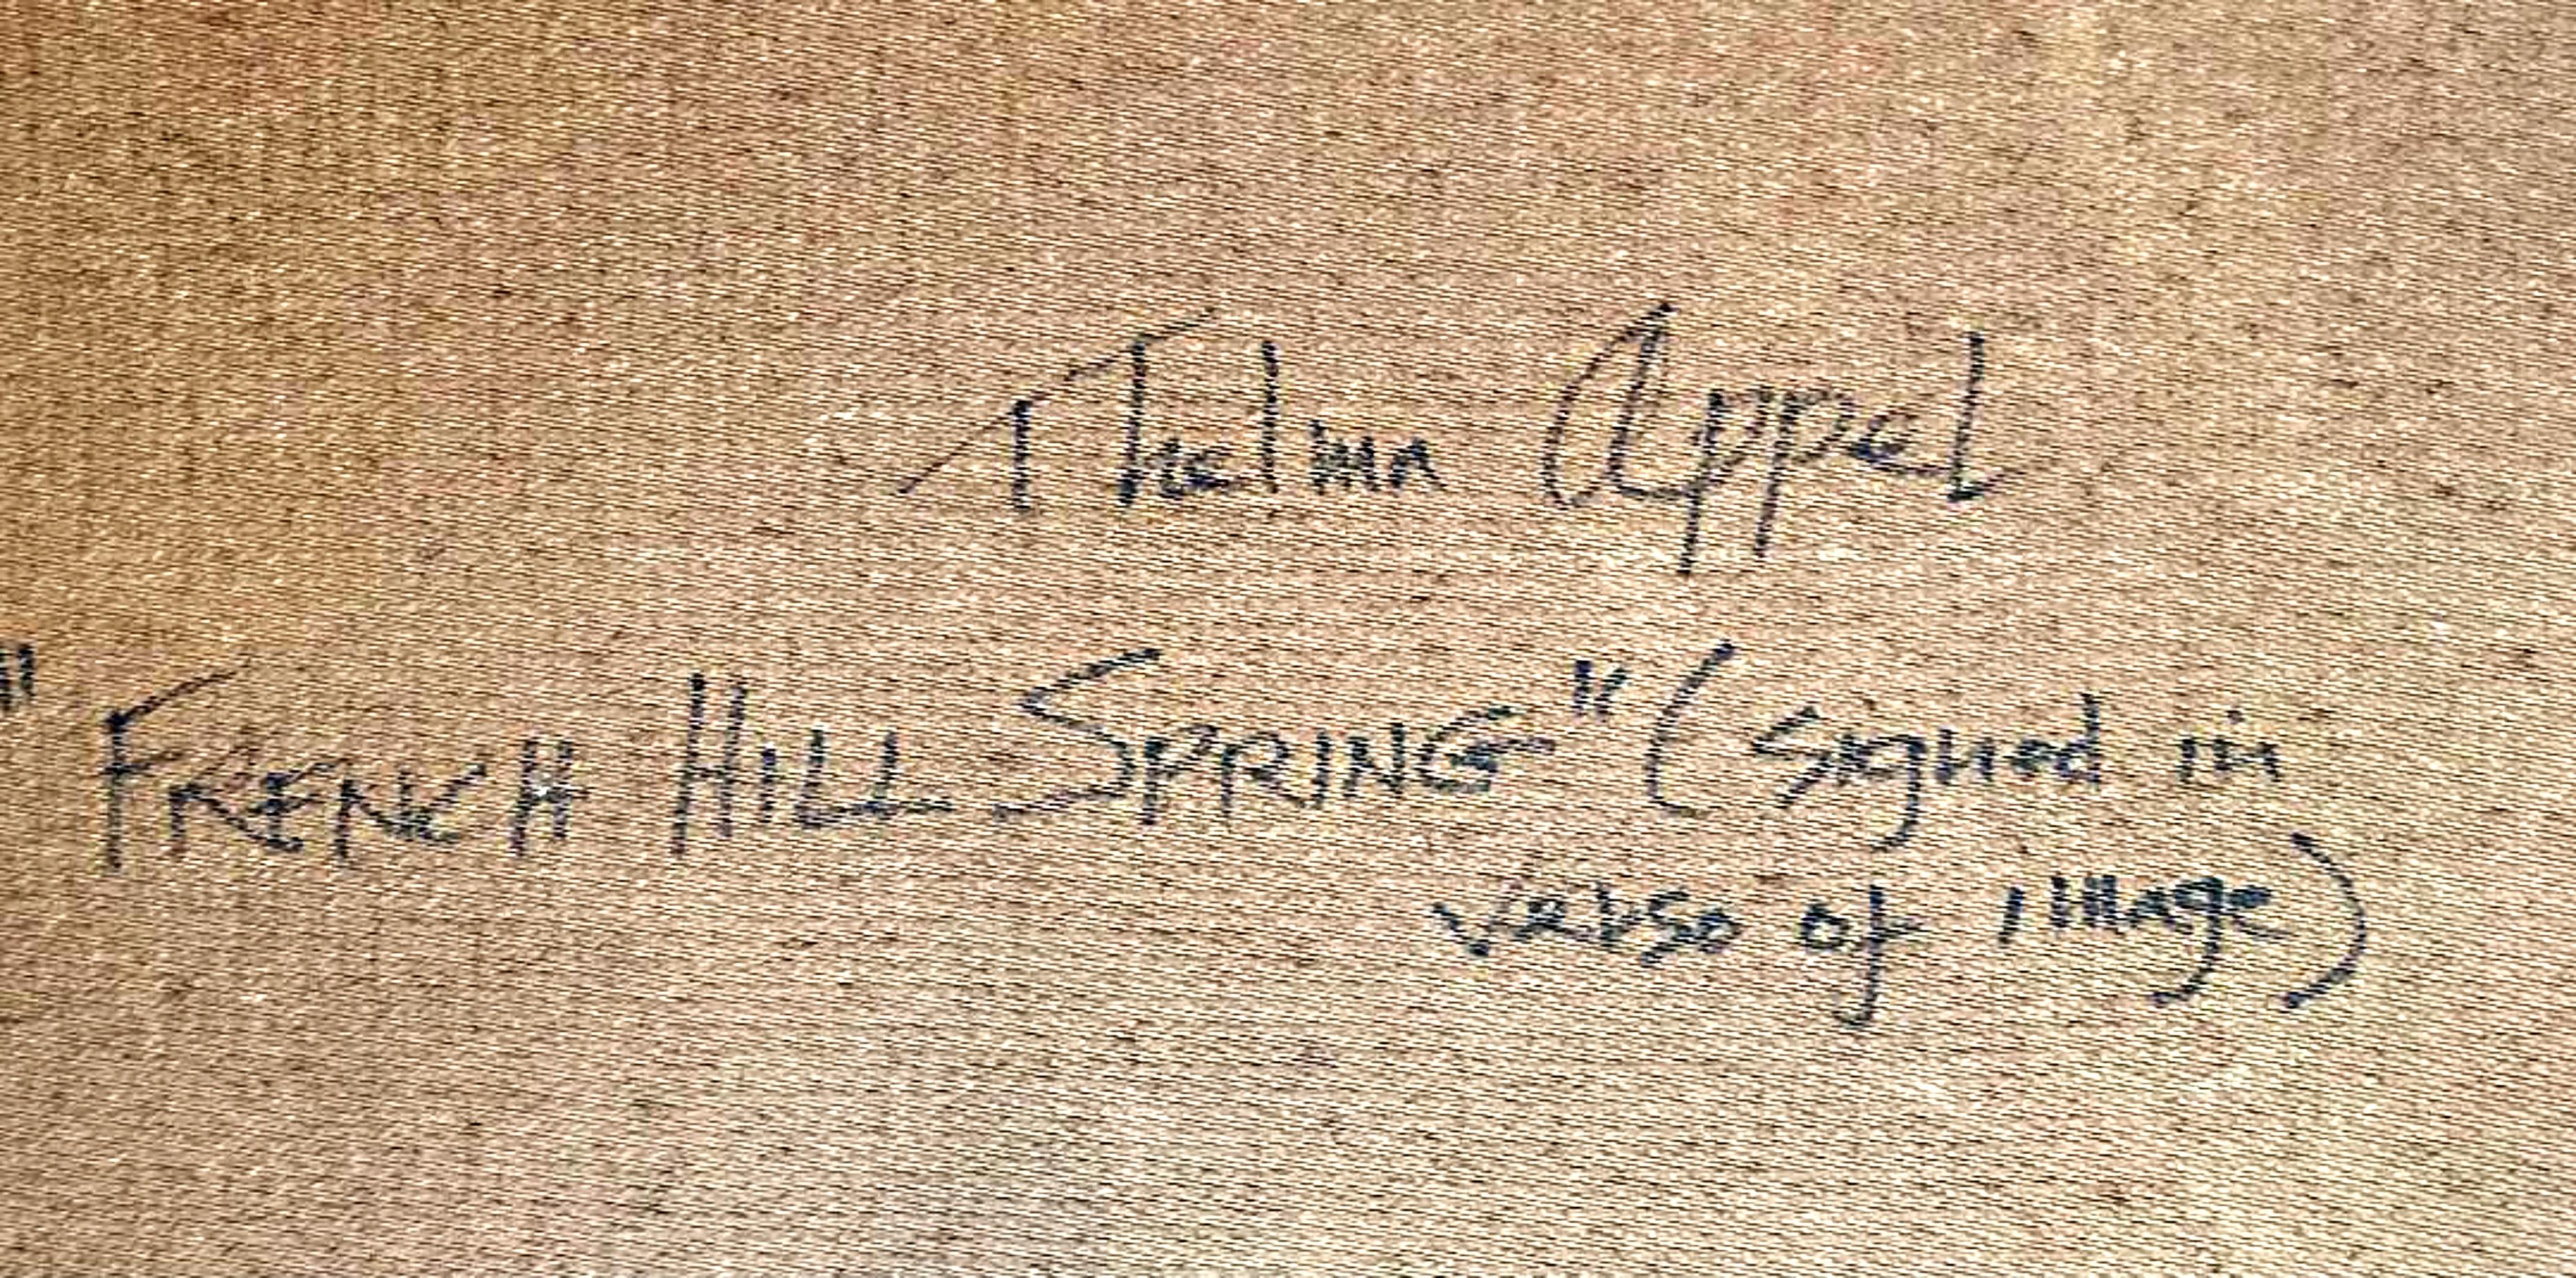 Thelma Appel
"FRENCH HILL SPRING" (Signed in
verso of image)